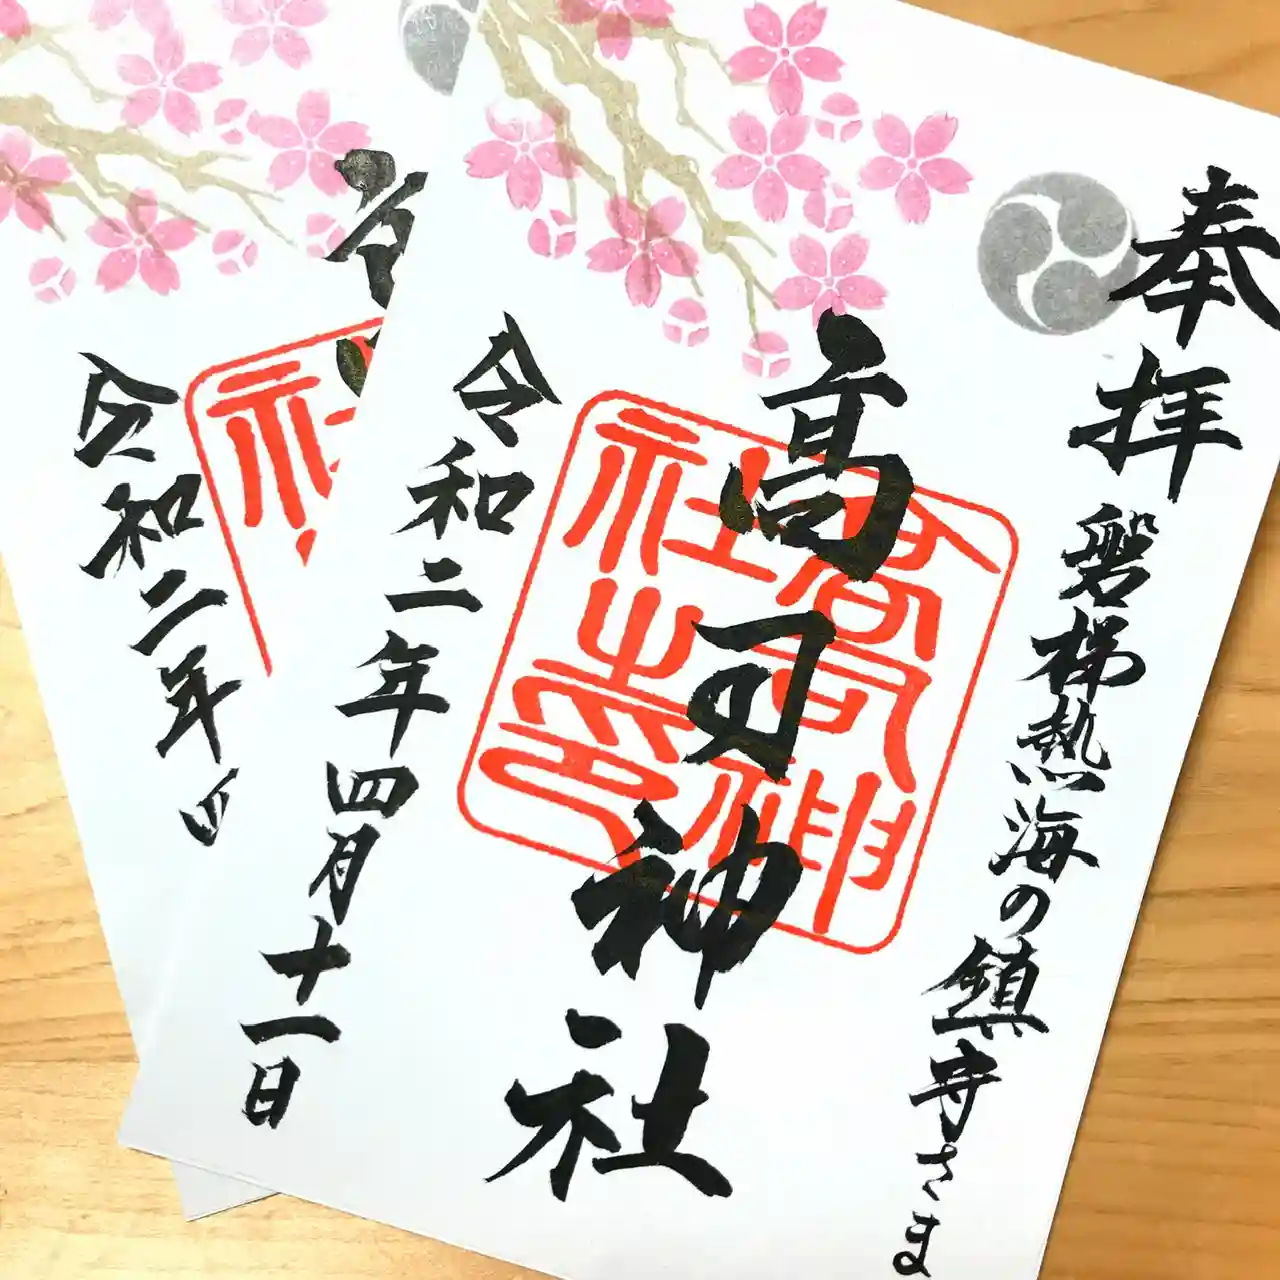 奉拝
磐梯熱海の鎮守さま
高司神社
高司神社之印
令和二年四月十一日
令和二年四